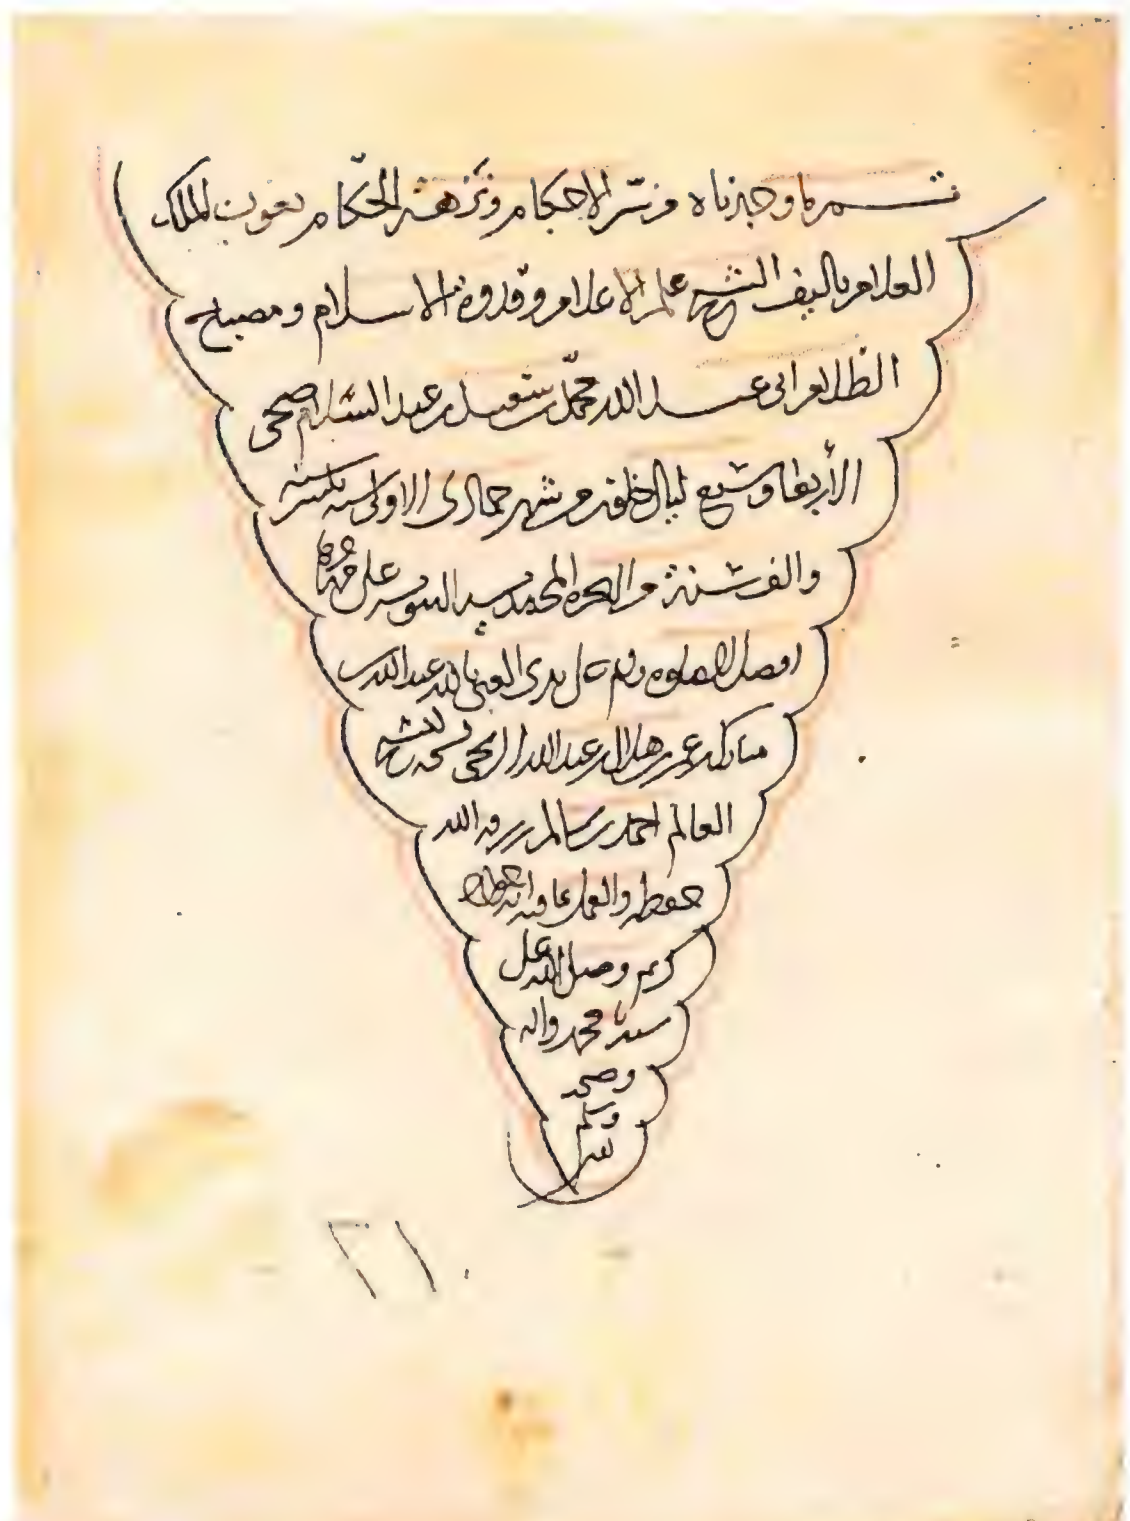 تم ما وجدناه من سر الاحكام ونزهة الحكام بعون الملك
العلام تاليف الشيخ علم الاعلام وقدوة الاسلام ومصباح
الظلام ابي عبد الله محمد بن سعيد بن عبد السلام ضحى
الأربعاء وسبع ليال خلون من شهر جمادى الاولى سنة
والف سنة من الهجرة المحمدية على مهاجرها
افضل الصلوة والسلام على يدي الغني بالله عبد الله بن
مبارك بن عمر بن هلال بن عبد الله نسخه للشيخ
العالم احمد بن سالم رزقه الله
حفظه والعمل بما فيه انه جواد
كريم وصلى الله على
سيدنا محمد واله
وصحبه
وسلم
٢١